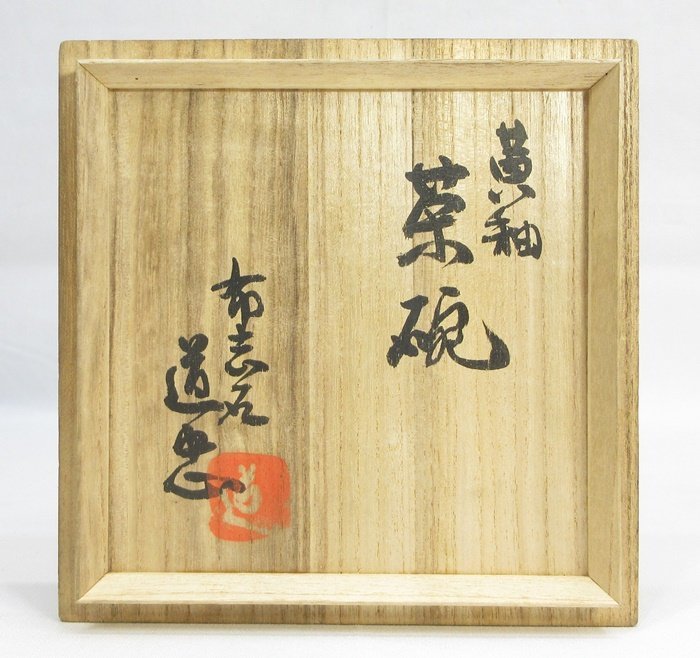 黄釉
茶碗
布志名
道忠
道